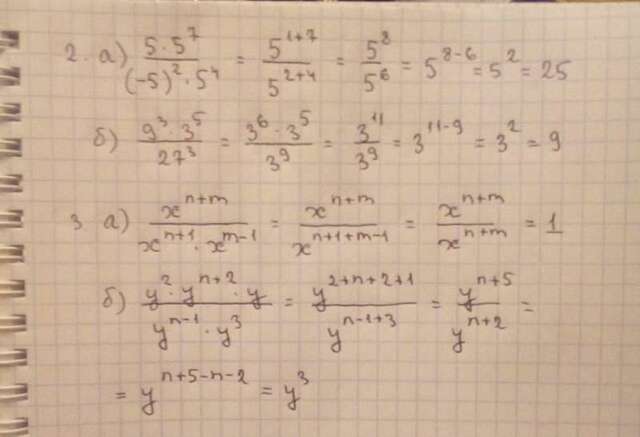 2. а) (5·5⁷)/((-5)²·5⁴) = 5¹⁺⁷/5²⁺⁴ = 5⁸/5⁶ = 5⁸⁻⁶ = 5² = 25
б) (9³·3⁵)/27³ = (3⁶·3⁵)/3⁹ = 3¹¹/3⁹ = 3¹¹⁻⁹ = 3² = 9
3 а) xⁿ⁺ᵐ/(xⁿ⁺¹·xᵐ⁻¹) = xⁿ⁺ᵐ/xⁿ⁺¹⁺ᵐ⁻¹ = xⁿ⁺ᵐ/xⁿ⁺ᵐ = 1
б) (y²·yⁿ⁺²·y)/(yⁿ⁻¹·y³) = y²⁺ⁿ⁺²⁺¹/yⁿ⁻¹⁺³ = yⁿ⁺⁵/yⁿ⁺² =
= yⁿ⁺⁵⁻ⁿ⁻² = y³